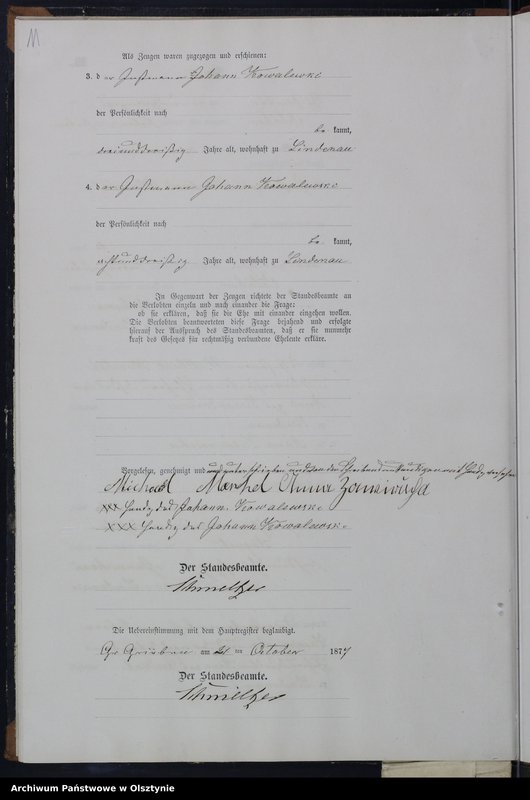 11
Als Zeugen waren zugezogen und erschienen:
3. der Instmann Johann Kowalewski
der Persönlichkeit nach
be kannt,
dreiunddreißig Jahre alt, wohnhaft zu Lindenau
4. der Instmann Johann Kowalewski
der Persönlichkeit nach
be kannt,
achtunddreißig Jahre alt, wohnhaft zu Lindenau
In Gegenwart der Zeugen richtete der Standesbeamte an
die Verlobten einzeln und nach einander die Frage:
ob sie erklären, daß sie die Ehe mit einander eingehen wollen.
Die Verlobten beantworteten diese Frage bejahend und erfolgte
hierauf der Ausspruch des Standesbeamten, daß er sie nunmehr
kraft des Gesetzes für rechtmäßig verbundene Eheleute erkläre.
Vorgelesen, genehmigt und unterschrieben und von den
Michael Markel Anna
XXX Handz. des Johann Kowalewski
XXX Handz. des Johann Kowalewski
Der Standesbeamte.
Schmeltzer
Die Uebereinstimmung mit dem Hauptregister beglaubigt.
Gr Grieben am 21 ten October 1877
Der Standesbeamte.
Schmeltzer
Archiwum Państwowe w Olsztynie